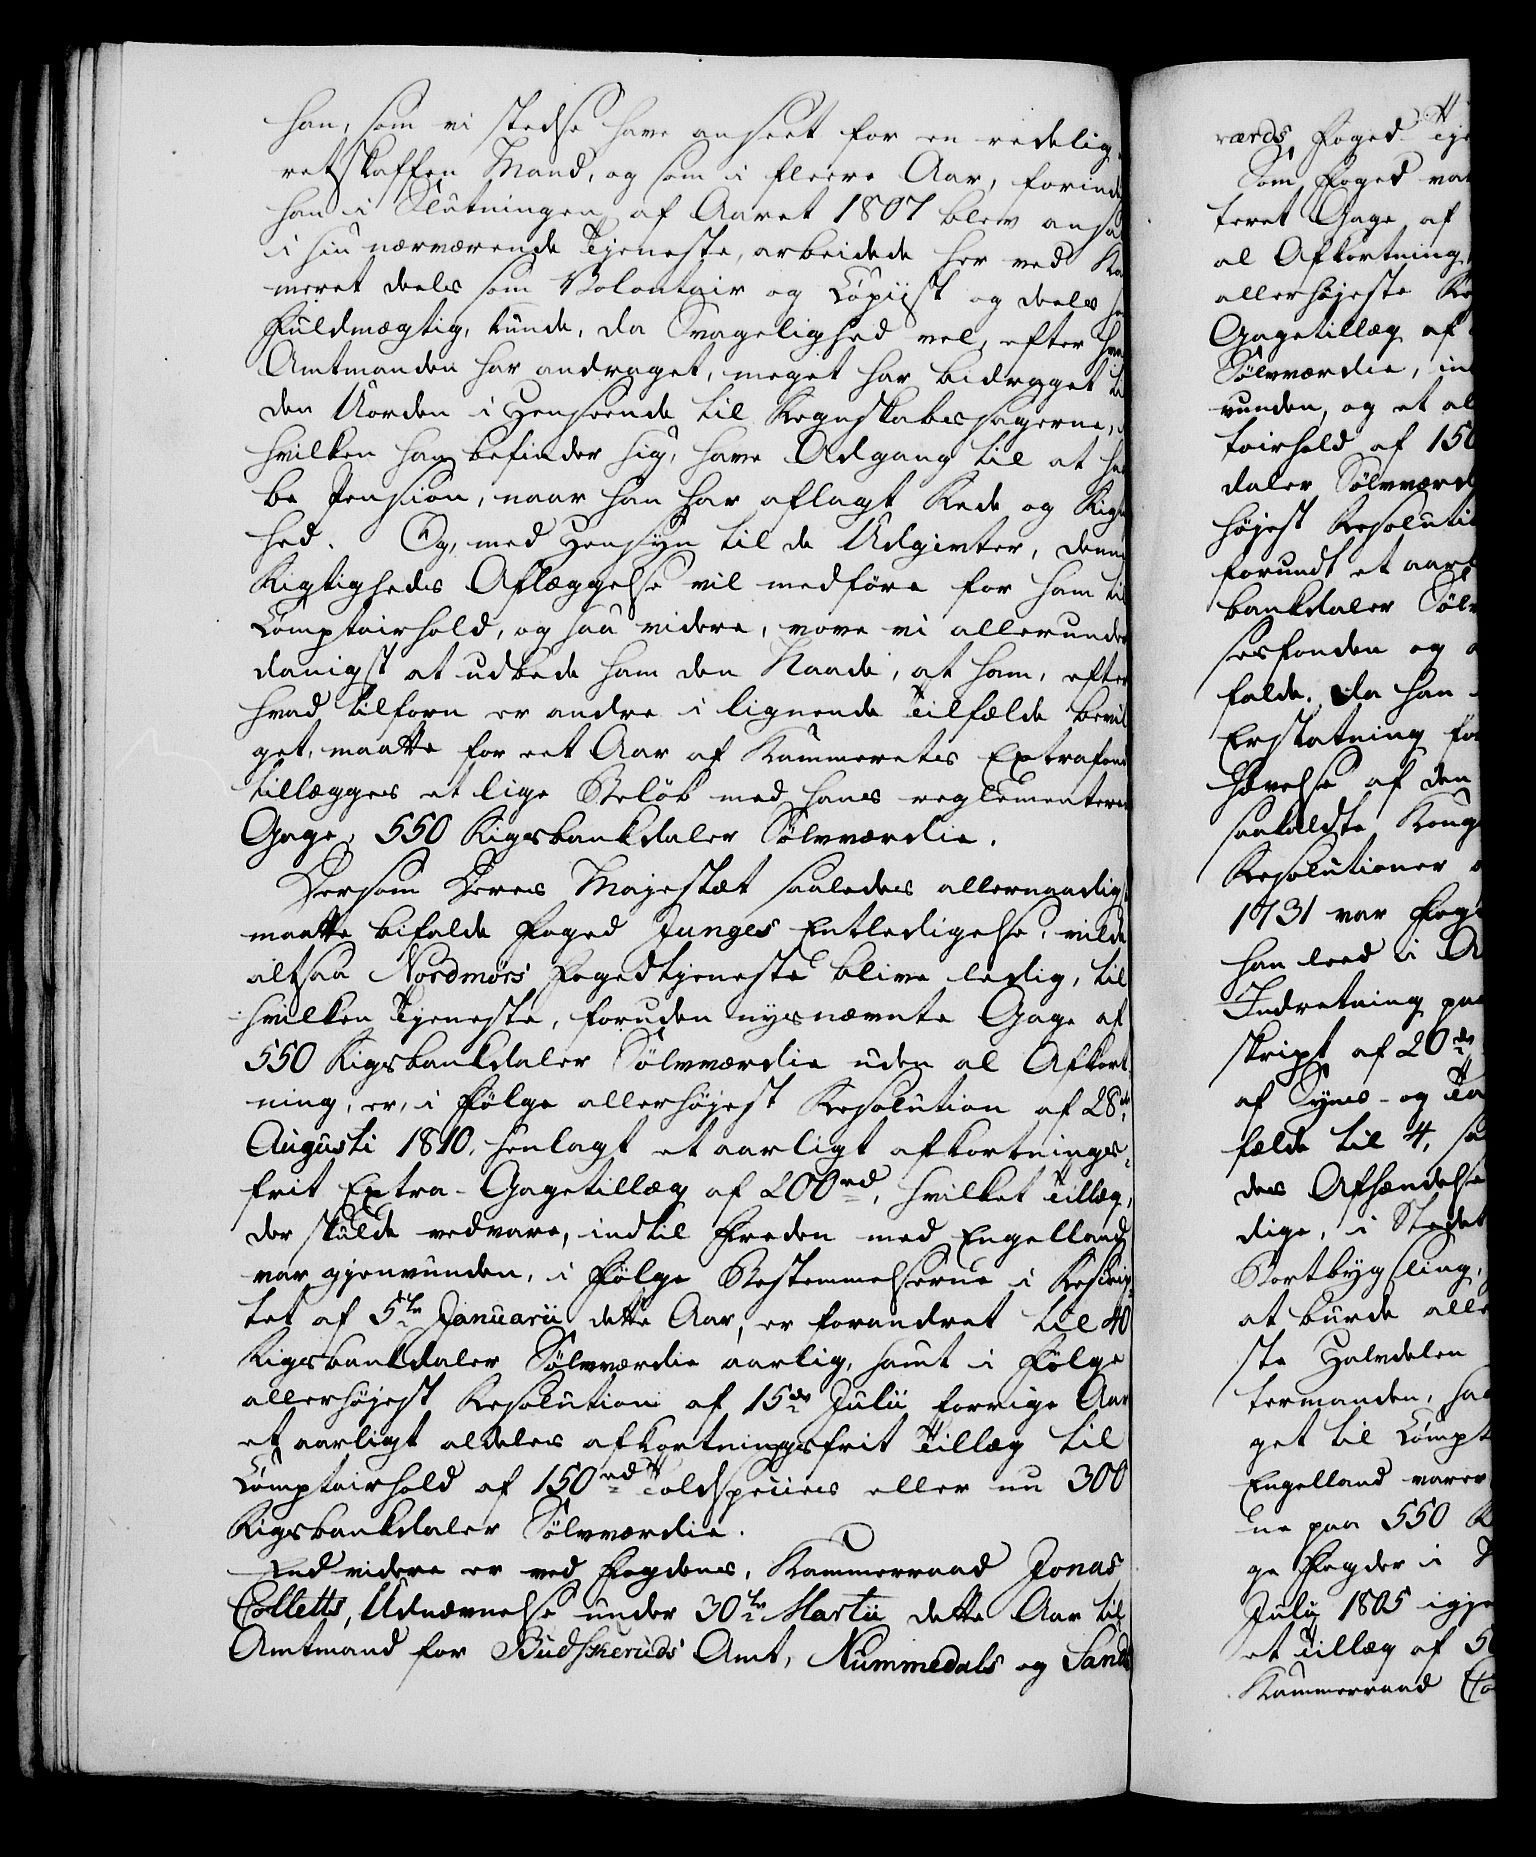 han, som vi stedse have anseet for en redelig
retskaffen Mand, og som i fleere Aar, forinden
han i Slutningen af Aaret 1807 blev ansa
i sin nærværende Tjeneste, arbeidede her ved Ka
meret deels som Volontair og Copiist og deels so
Fuldmægtig, kunde, da Svagelighed vel, efter hva
Amtmanden har andraget, meget har bidraget ti
den Uorden i Henseende til Regnskabssagerne, i
hvilken han befinder sig, have Adgang til at ha
be Pension, naar han har aflagt Rede og Rigtig
hed. Og, med Hensyn til de Udgivter, denne
Rigtigheds Aflæggelse vil medføre for ham til
Comptoirhold, og saa videre, vove vi allerunder
danigst at udbede ham den Naade, at ham, efter
hvad tilforn er andre i lignende Tilfælde bevil
get, maatte for eet Aar af Kammerets Extrafond
tillægges et lige Beløb med hans reglementerede
Gage, 550 Rigsbankdaler Sølvværdie.
Dersom Deres Majestæt saaledes allernaadigst
maatte bifalde Foged Junges Entledigelse, vilde
altsaa Nordmørs Fogedtjeneste blive ledig, til
hvilken Tjeneste, foruden nysnævnte Gage af
550 Rigsbankdaler Sølvværdie uden al Afkort
ning, er, i Følge allerhøjest Resolution af 28de
Augusti 1810, henlagt et aarligt afkortnings-
frit Extra-Gagetillæg af 200 rd, hvilket Tillæg,
der skulde vedvare, indtil Freden med Engelland
var gjenvunden, i Følge Bestemmelserne i Rescrip-
tet af 5te Januarii dette Aar, er forandret til 40
Rigsbankdaler Sølvværdie aarlig, samt i Følge
allerhøjest Resolution af 15de Julii forrige Aar
et aarligt aldeles afkortningsfrit Tillæg til
Comptoirhold af 150 rd Toldspecies eller nu 300
Rigsbankdaler Sølvværdie.
End videre er ved Fogdens, Kammerraad Jonas
Colletts, Udnævnelse under 30te Martii dette Aar til
Amtmand for Budskeruds Amt, Nummedals og Sands
værds Foged Tje
Som Foged var
teret Gage af
al Afkortning
allerhøjeste Re
Gagetillæg af
Sølvværdie, in
vunden, og et al
toirhold af 150
daler Sølvværd
højest Resoluti
forundt et aarl
bankdaler Sølv
sesfonden og
falde, da han
Erstatning for
hævelse af den
saakaldte Konge
Resolutioner
1731 var Fog
han leed i A
Indretning paa
skript af 20de
af Synes- og Ta
fælde til 4, sa
des Afhændelse
dige, i Stedet
Bortbygsling,
at burde alle
ste Halvdelen
termanden, sa
get til Compt
Engelland varer
ne paa 550 R
ge Fogder i
July 1805 igje
et Tillæg af 5
Kammerraad Co